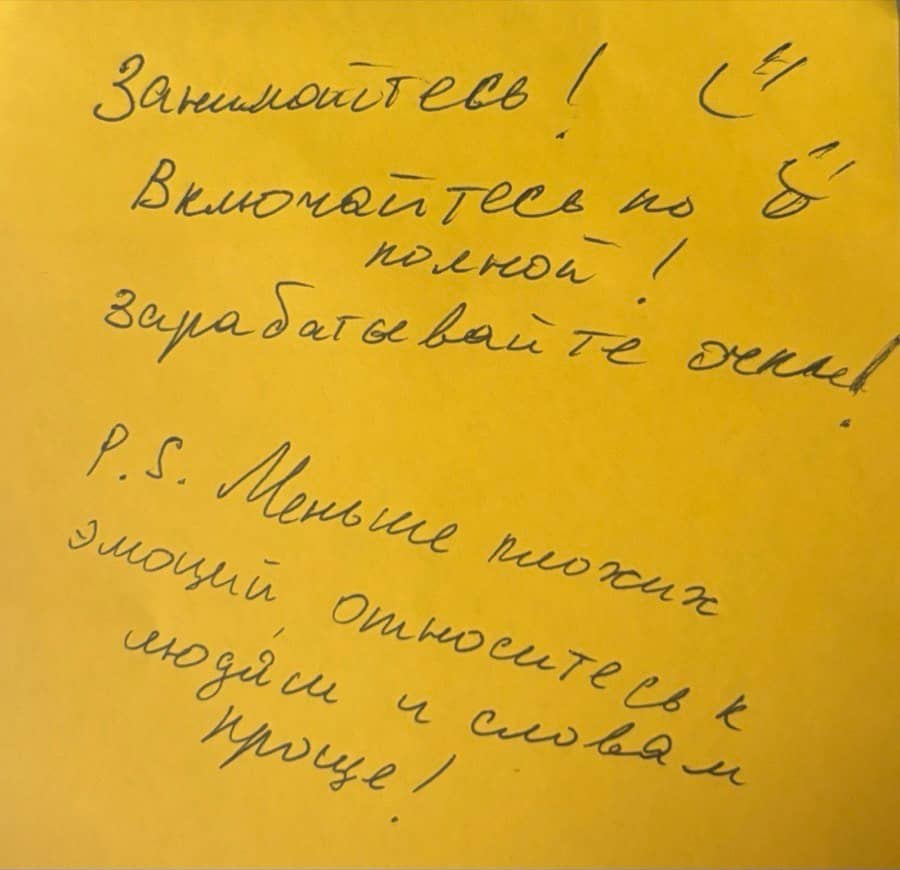 Занимайтесь!
Включайтесь по
полной!
Зарабатывайте очки!
P.S. Меньше плохих
эмоций, относитесь к
людям и словам
проще!